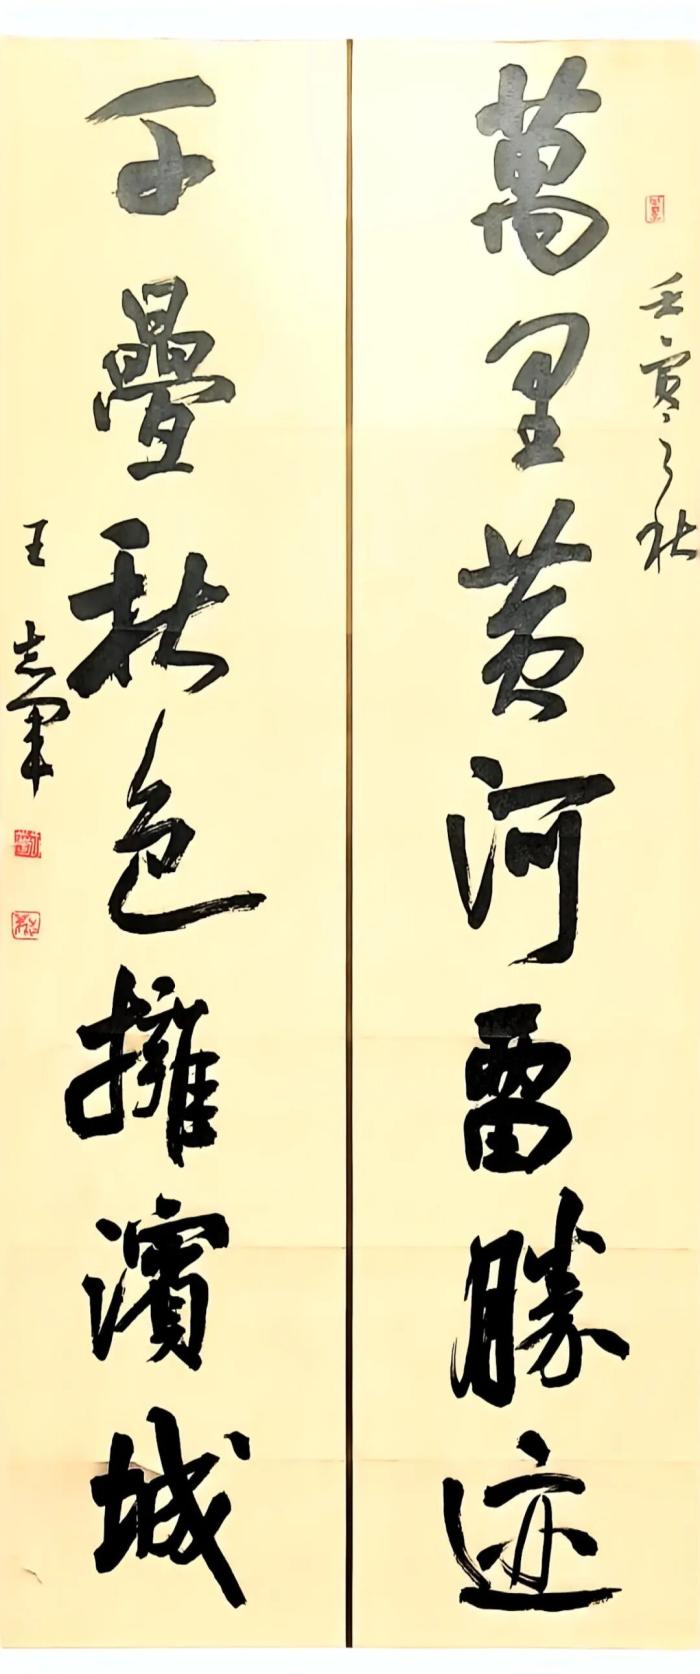 壬寅之秋
萬里黄河畱勝迹
千疊秋色擁濱城
王志軍